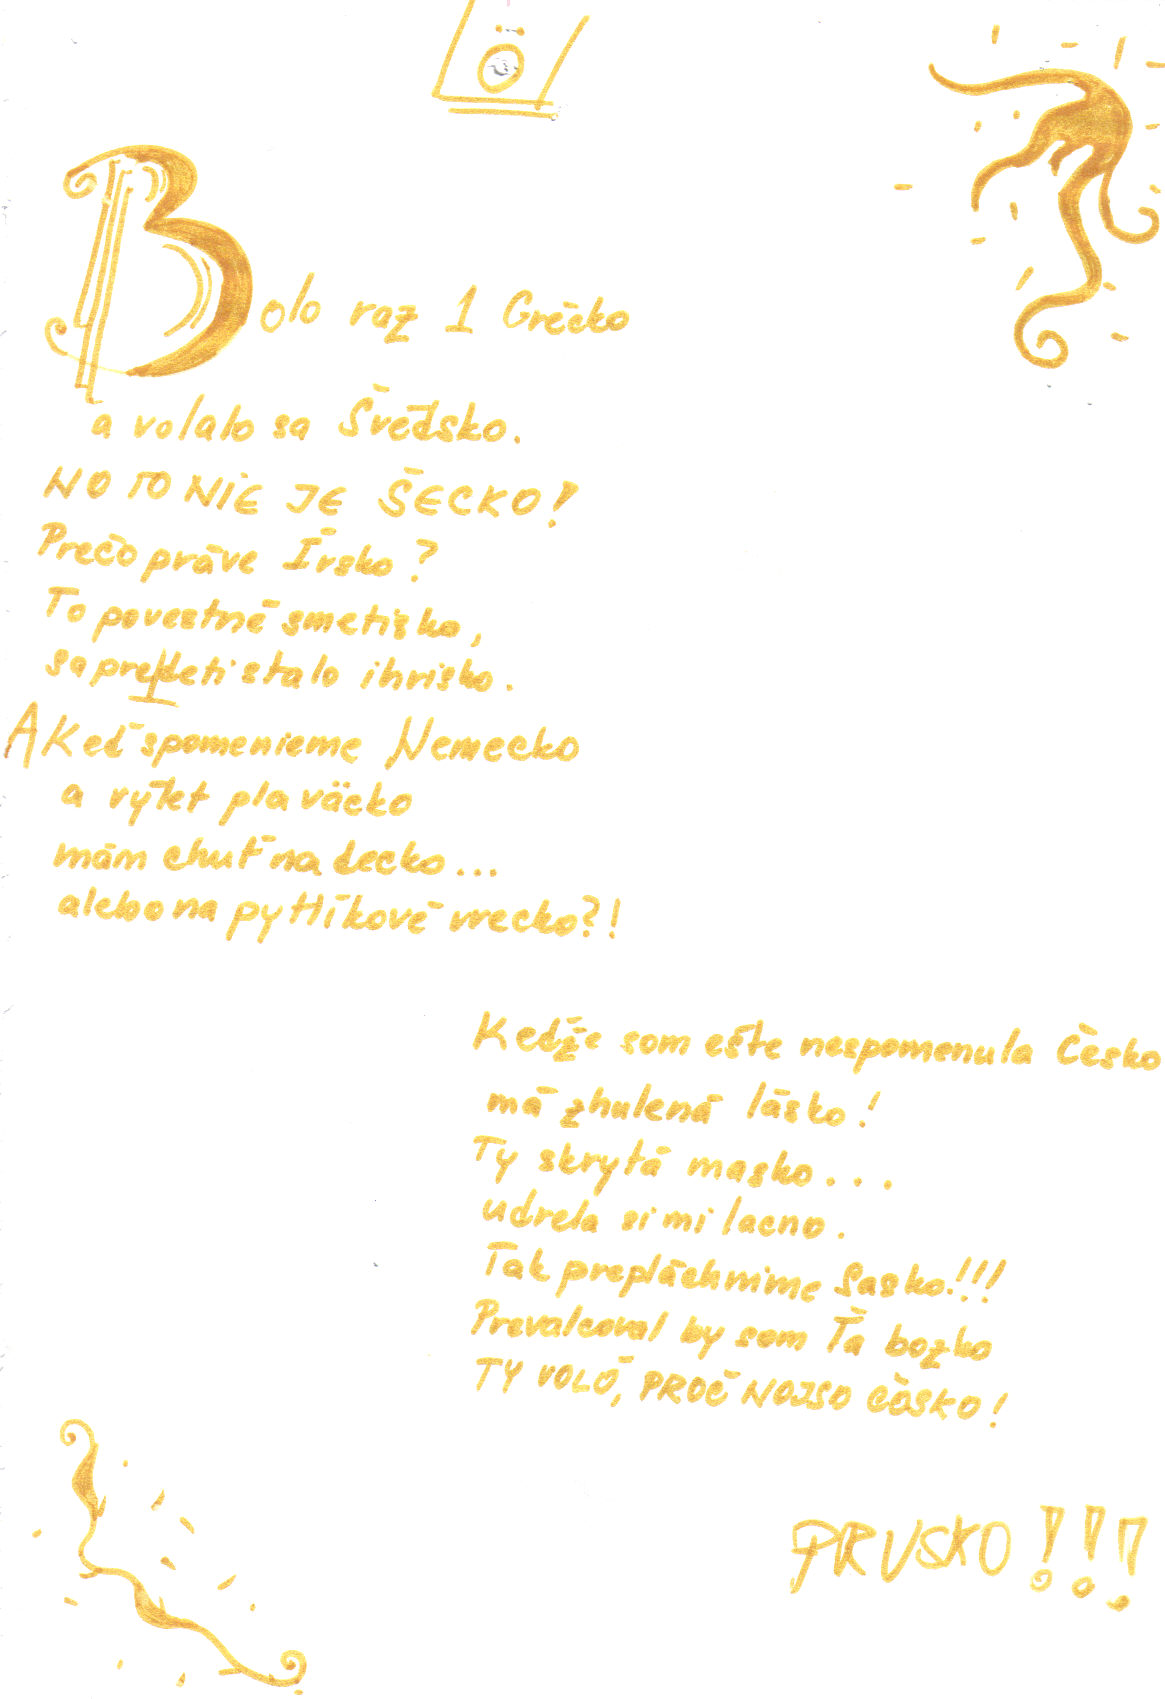 Ö
Bolo raz 1 Grécko
a volalo sa Švédsko.
NO TO NIE JE ŠECKO!
Prečo práve Írsko?
To povestné smetisko,
sa predeti stalo ihrisko.
A Keď spomenieme Nemecko
a rýtet plaväcko
mám chuť na decko...
alebo na pytlíkové vrecko?!
Kedže som ešte nespomenula Česko
má zhulená lásko!
Ty skrytá masko...
udrela si mi lacno.
Tak prepláchnime Sasko!!!
Prevalcoval by som Ťa bozko
TY VOLÓ, PROČ NOJSO ČÒSKO!
PRUSKO!!!